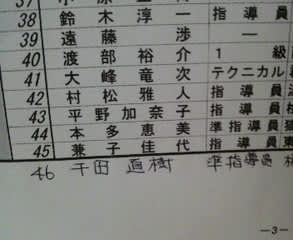 38 鈴木淳一 指導員
39 遠藤 渉 —
40 渡部裕介 1級
41 大峰竜次 テクニカル
42 村松雅人 指導員
43 平野加奈子 指導員
44 本多恵美 準指導員
45 兼子佳代 指導員
46 千田 直樹 準指導員
—3—